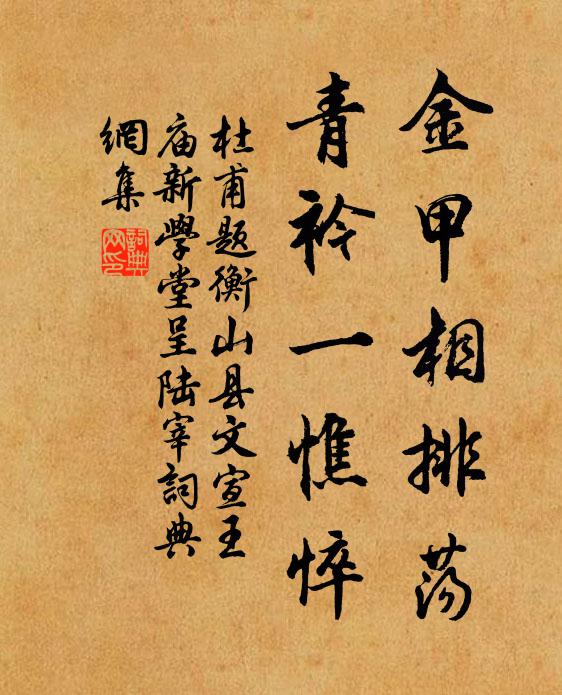 金甲相排荡
青衿一憔悴
杜甫题衡山县文宣王
庙新學堂呈陆宰詞典
網集
詞典
网印